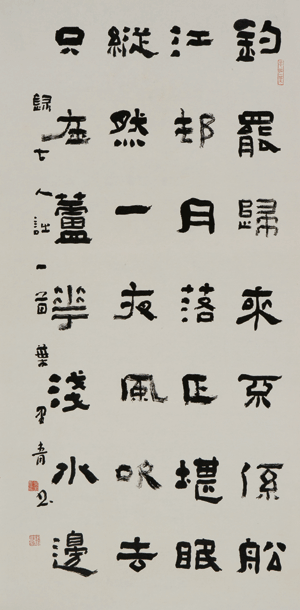 釣罷歸來不係舩
江邨月落正堪眠
縱然一夜風吹去
只在蘆華淺水邊
人詩一首 葉 青